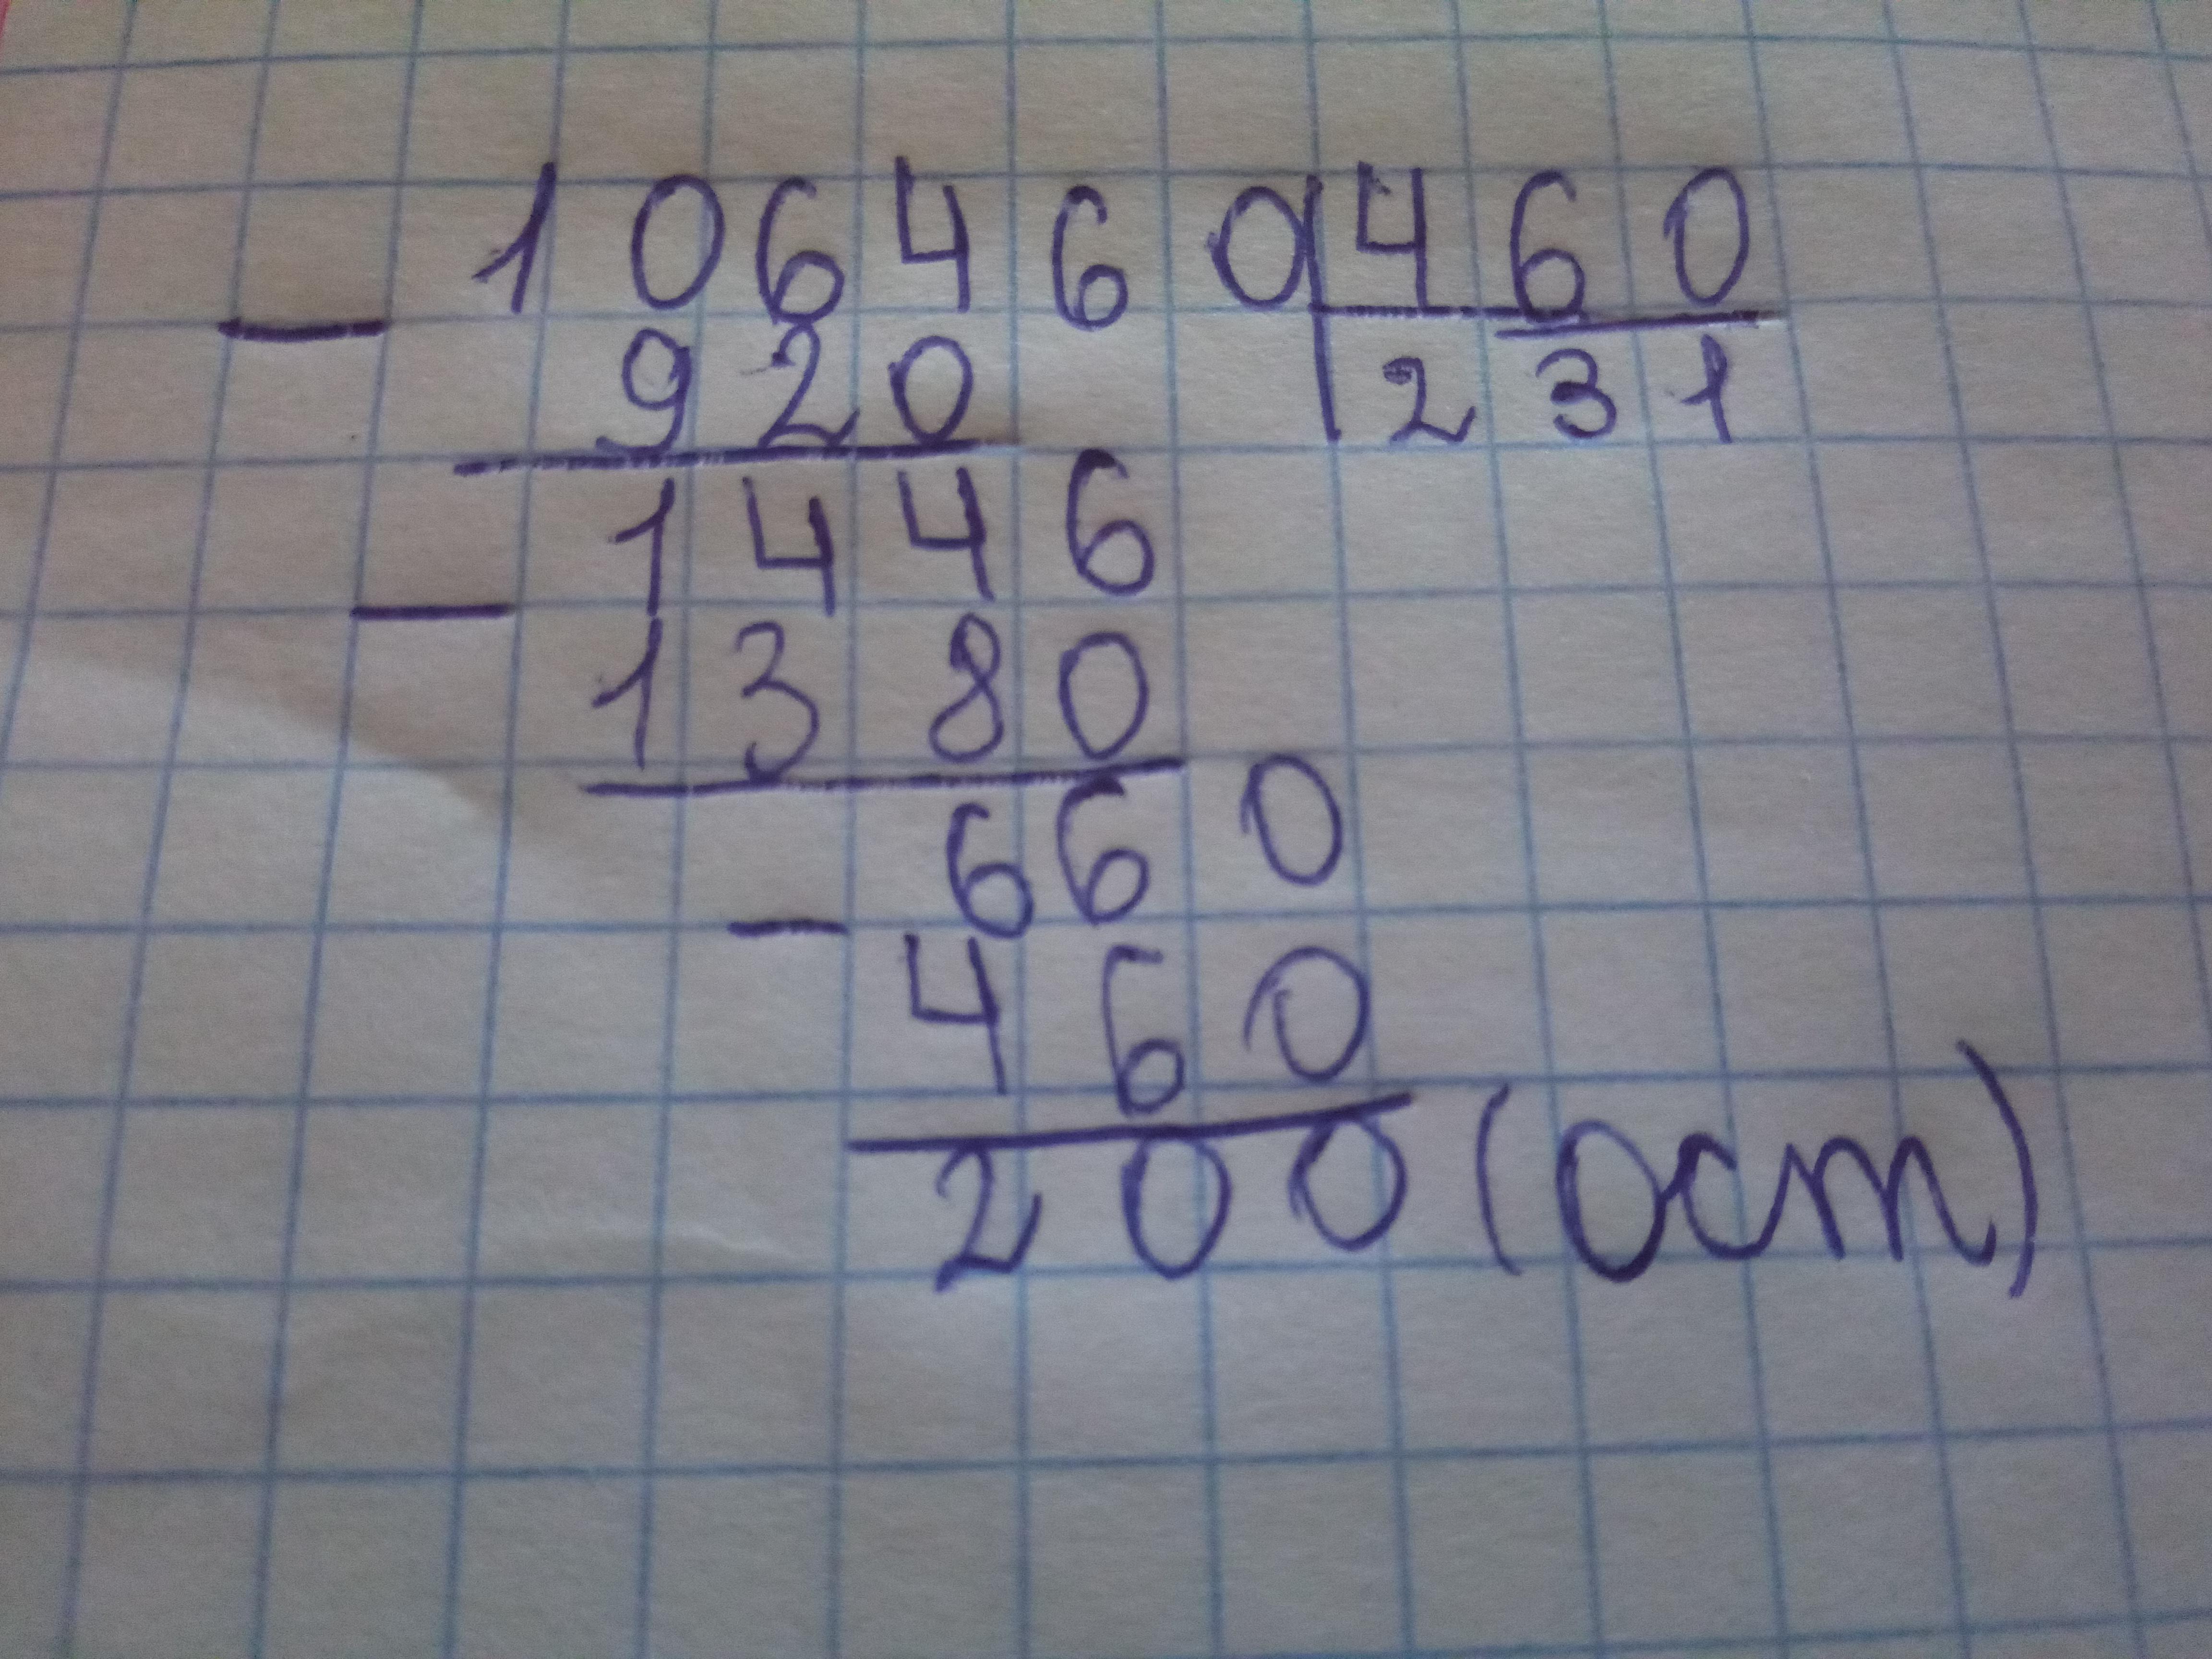 106460 460
- 920 231
1446
- 1380
660
- 460
200 (ост)